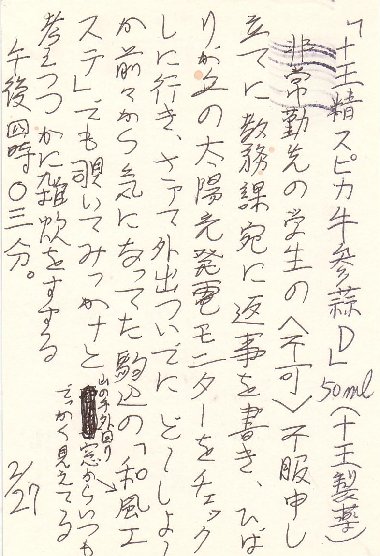 「十王精スピカ牛参蒜D」50ml(十王製薬)
非常勤先の学生の〈不可〉不服申し
立てに教務課宛に返事を書き、ひば
りが丘の太陽光発電モニターをチェック
しに行き、さァて外出ついでにど〜しよ〜
か前々から気になってた駒込の「和風エ
ステ」でも覗いてみっかナと
山の手外回り
窓からいつも
でっかく見えてる
考えつつかに雑炊をすする
午後四時〇三分。
2/27